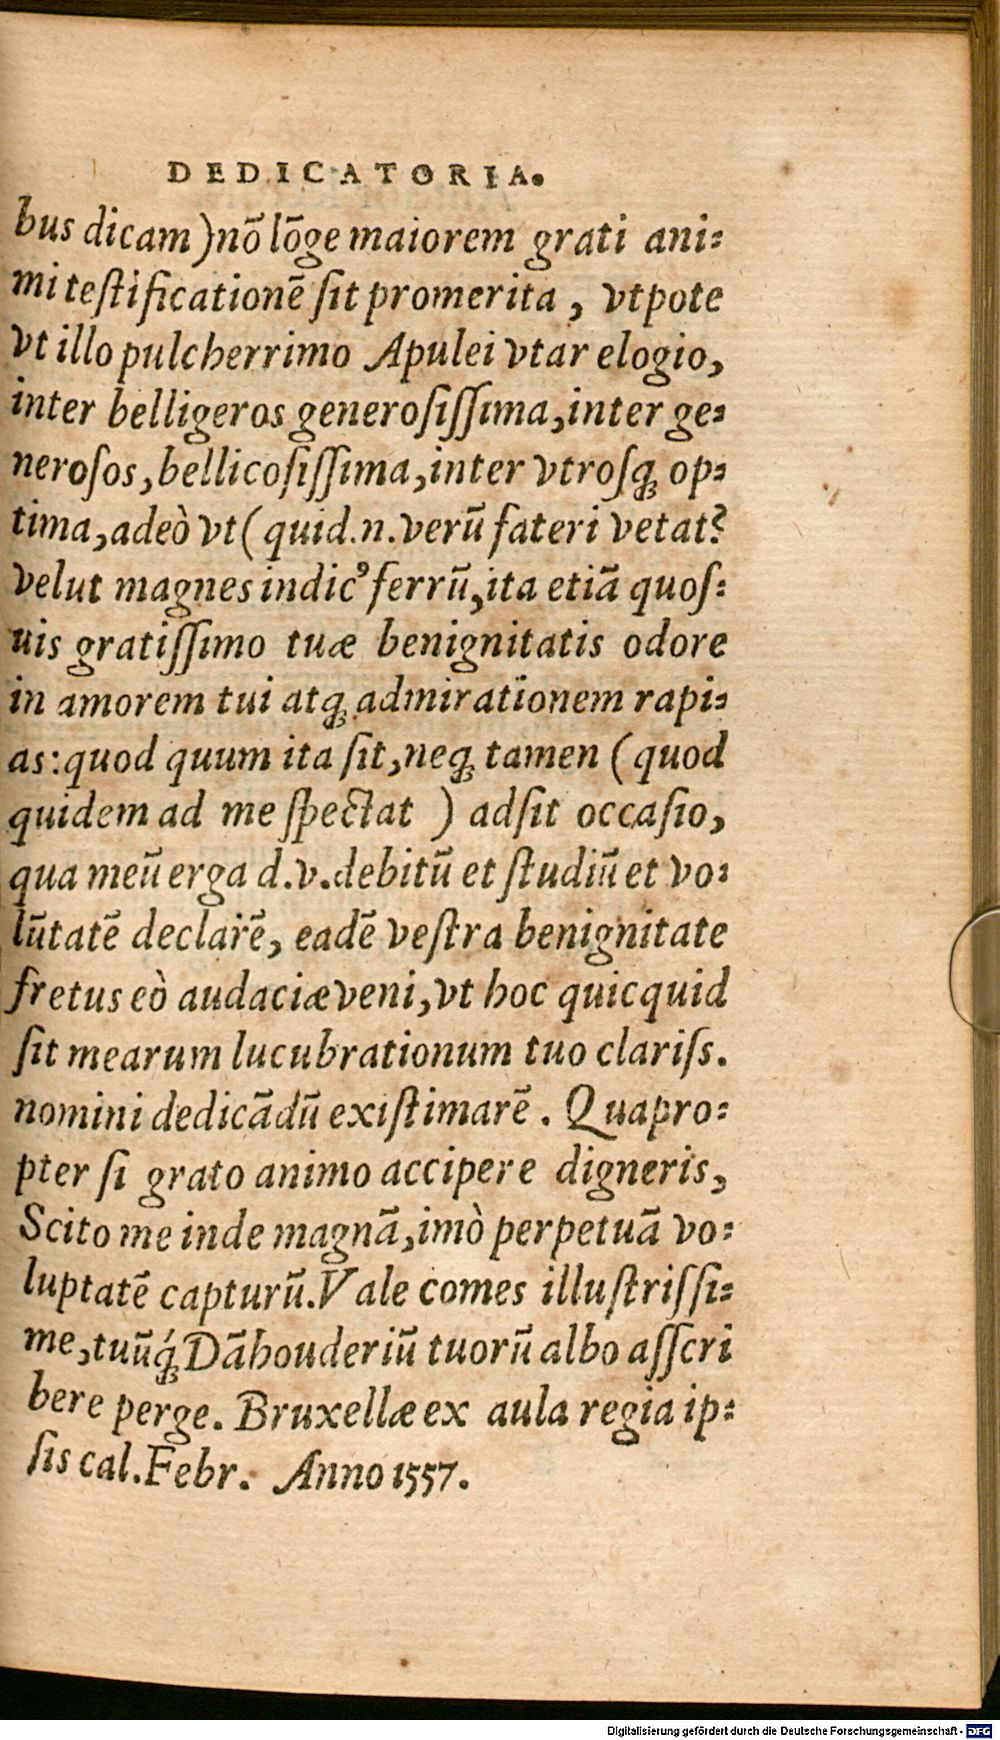 DEDICATORIA.
bus dicam) nō lōge maiorem grati ani-
mi testificationē sit promerita, vtpote
vt illo pulcherrimo Apulei vtar elogio,
inter belligeros generosissima, inter ge-
nerosos, bellicosissima, inter vtrosqꝫ op-
tima, adeò vt (quid.n.verū fateri vetat?
velut magnes indicꝰ ferrū, ita etiā quos-
uis gratissimo tuæ benignitatis odore
in amorem tui atqꝫ admirationem rapi-
as: quod quum ita sit, neqꝫ tamen (quod
quidem ad me spectat) adsit occasio,
qua meū erga d.v.debitū et studiū et vo-
lūtatē declarē, eadē vestra benignitate
fretus eò audaciæ veni, vt hoc quicquid
sit mearum lucubrationum tuo clariss.
nomini dedicādū existimarē. Quapro-
pter si grato animo accipere digneris,
Scito me inde magnā, imò perpetuā vo-
luptatē capturū. Vale comes illustrissi-
me, tuūq́ꝫ Dāhouderiū tuorū albo asscri
bere perge. Bruxellæ ex aula regia ip-
sis cal. Febr. Anno 1557.
Digitalisierung gefördert durch die Deutsche Forschungsgemeinschaft - DFG